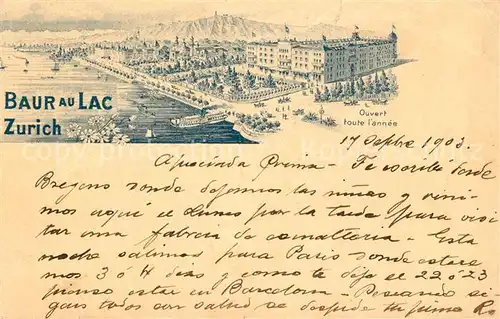 BAUR AU LAC
Zurich
Ouvert
toute l'année
17 Sepbre 1903.
Apreciada Prima - Te escribí desde
Bregenz donde dejamos las niñas y vini-
mos aquí el Lunes por la tarde para visi-
tar una fabrica de esmalteria - Esta
noche salimos para Paris donde estare
mos 3 ó 4 dias y como te dije el 22 ó 23
pienso estar en Barcelona - Deseando si-
gais todos con salud se despide tu primo